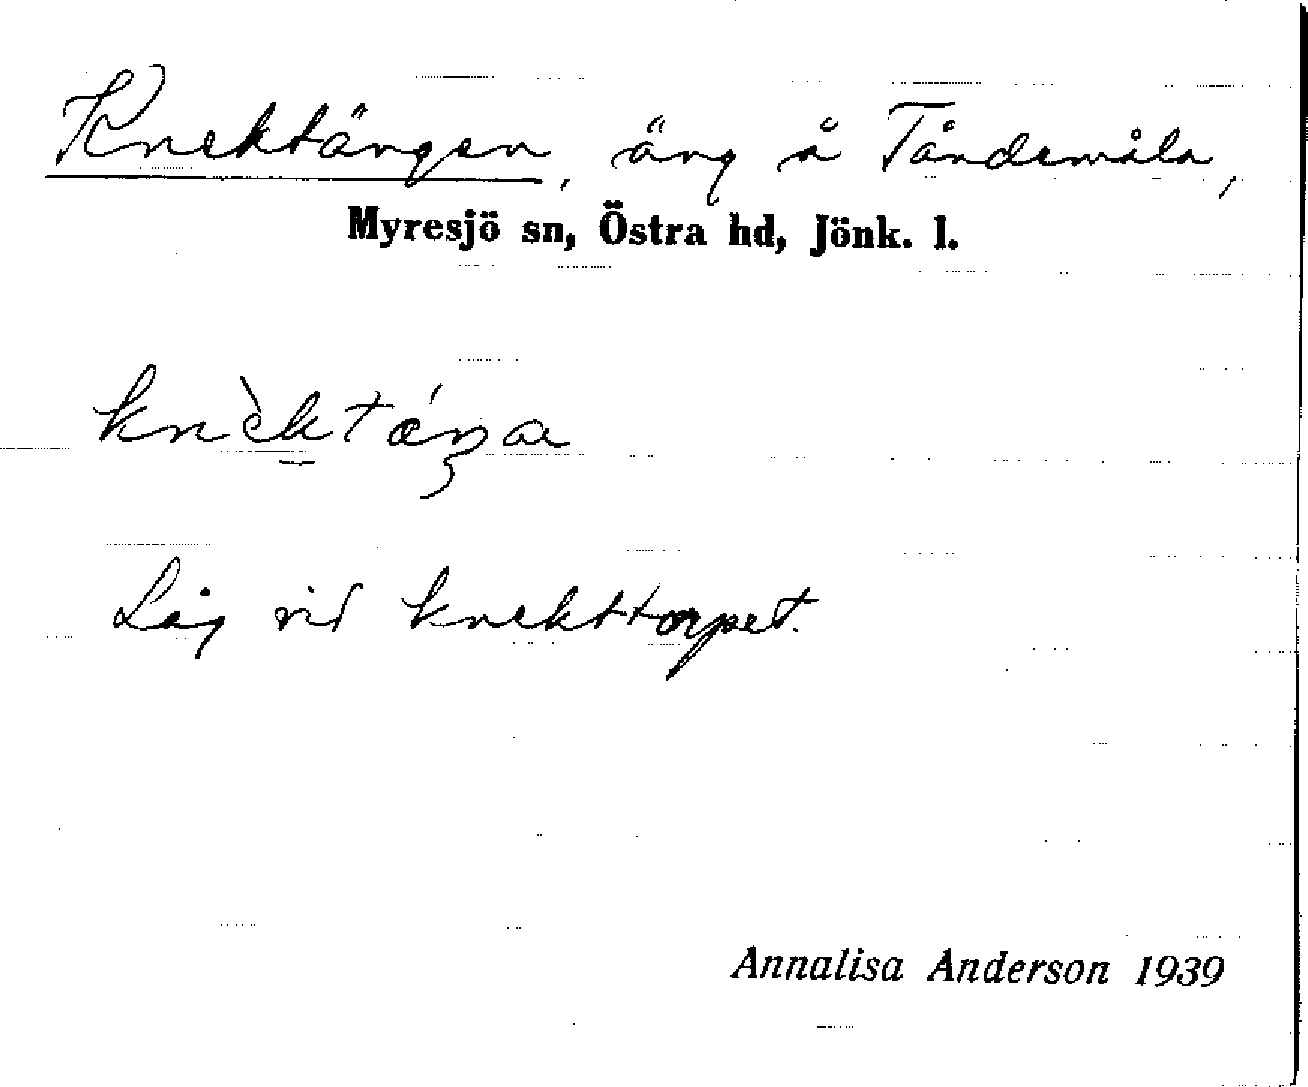 Knektängen, äng å Tåndemåla,
Myresjö sn, Östra hd, Jönk. l.
Låg vid knekttorpet.
Annalisa Anderson 1939